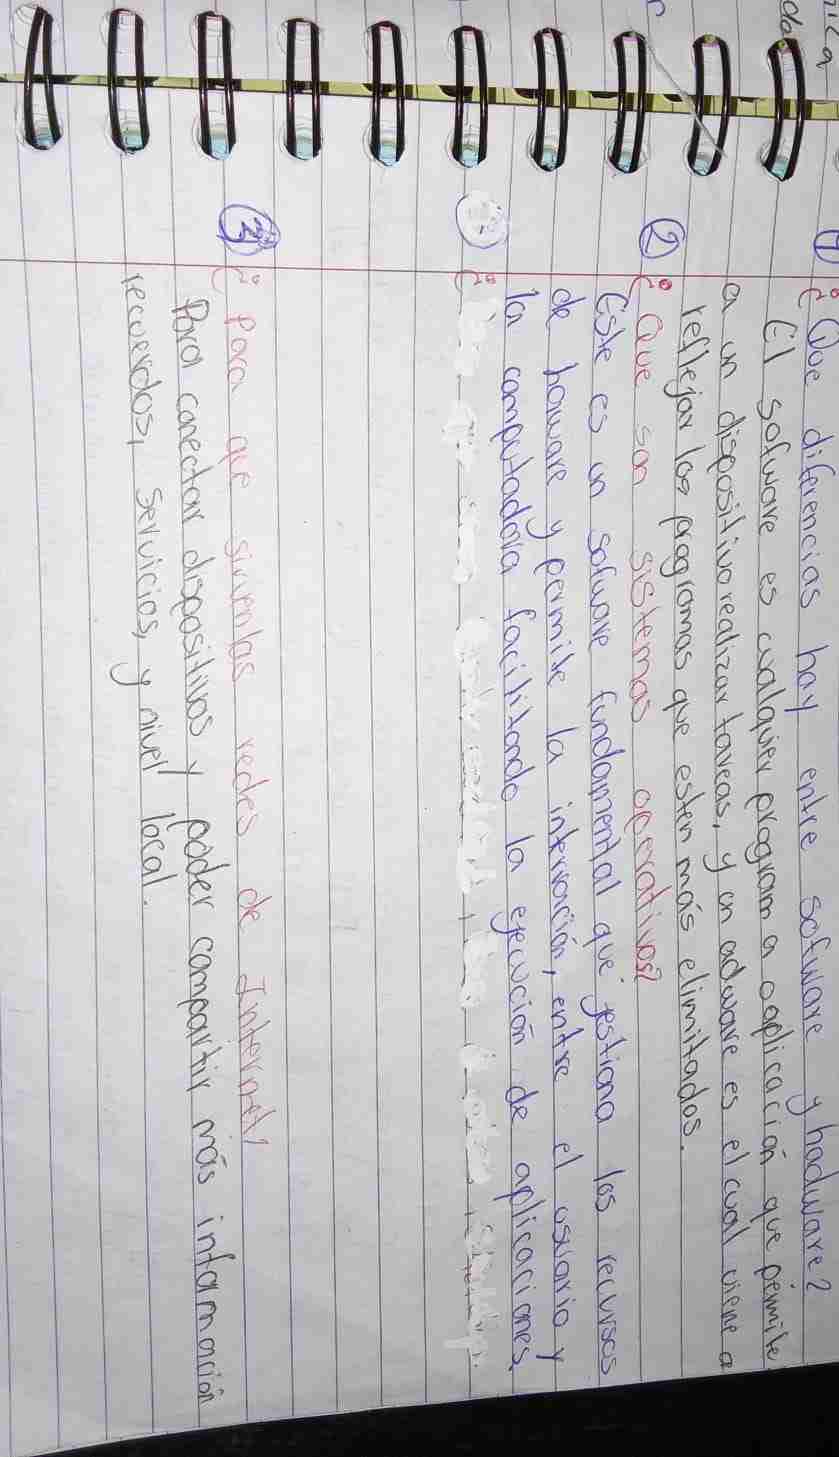 ① ¿Que diferencias hay entre sofware y hadware?
El sofware es cualquier program a o aplicación que permite
a un dispositivo realizar tareas, y un adware es el cual viene a
reflejar los programas que esten más elimitados.
② ¿Que son sistemas operativos?
Este es un sofware fundamental que gestiona los recursos
de haware y permite la interración, entre el usuario y
la computadora facilitando la ejecución de aplicaciones.
③ ¿Para que sirven las redes de Internet?
Para conectar dispositivos y poder compartir más información
recuerdos, servicios, y nivel local.